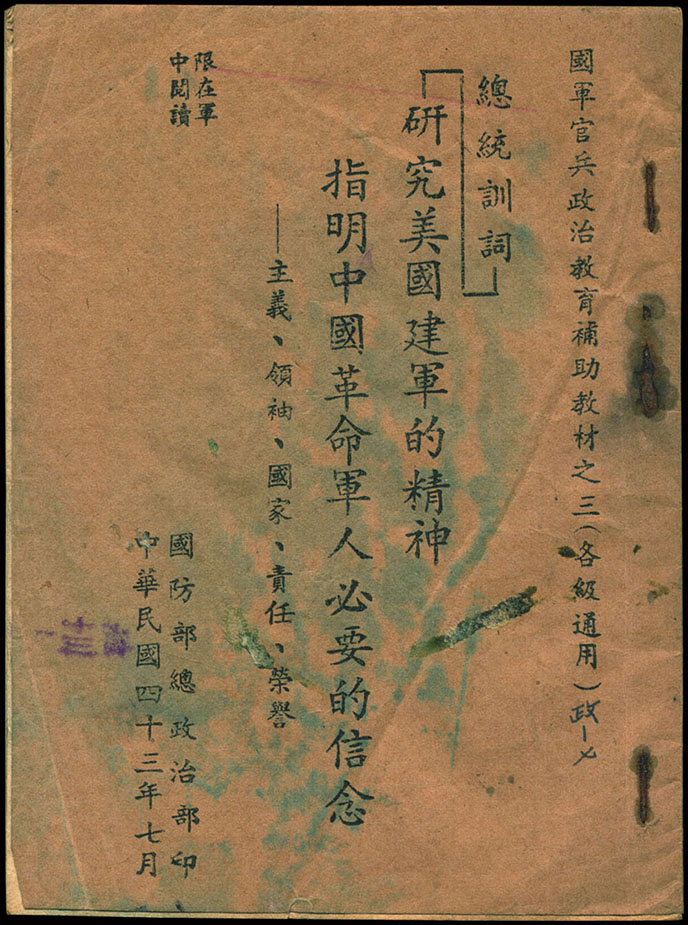 國軍官兵政治教育補助教材之三(各級通用)政
總統訓詞
研究美國建軍的精神
指明中國革命軍人必要的信念
——主義、領袖、國家、責任、榮譽
限在軍
中閱讀
國防部總政治部印
中華民國四十三年七月